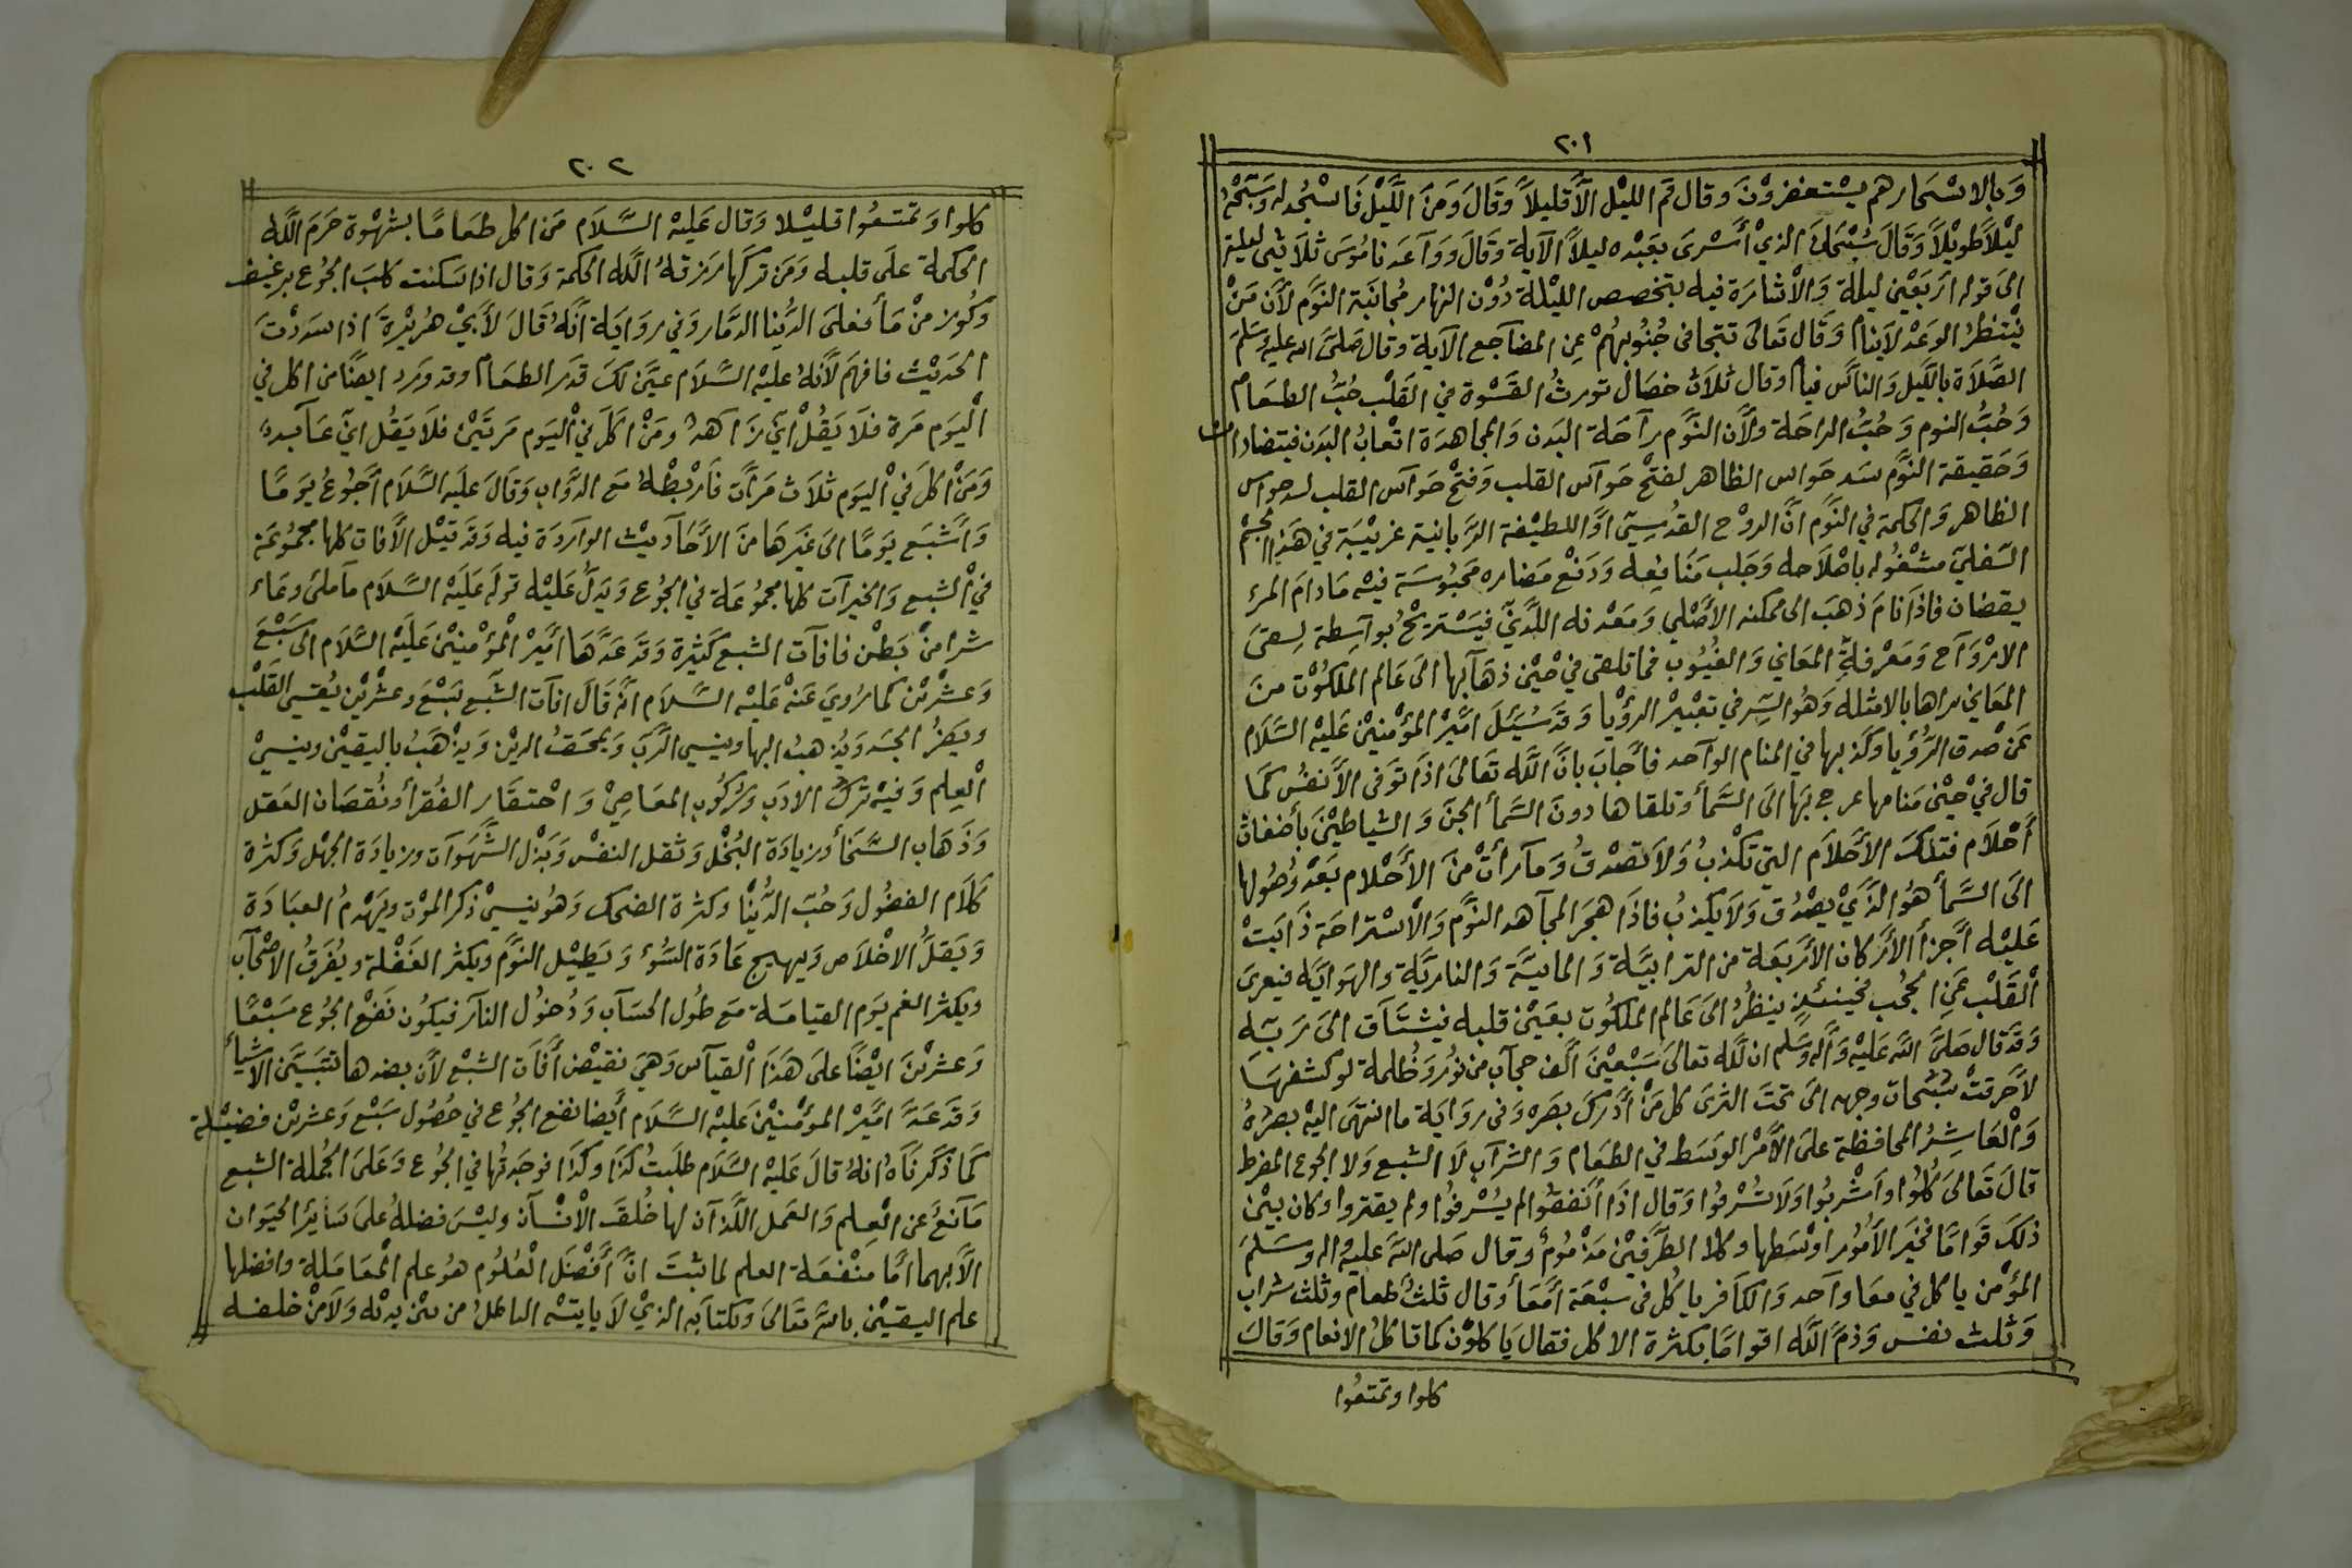 ٢٠١
وَبالاسْحَارهم يسْتغفرُوْنَ وقال قم الليْل الاَّ قليلاً وَقَالَ وَمنَ اللَّيْل فَاسْجُد له وَسَبّحْهُ
ليْلاً طويْلاً وَقَالَ سُبْحَانَ الذيْ أسْرىَ بعَبْده ليلاً الآية وَقَالَ وَوَآعَدنا مُوسَى ثلاَثيْنَ ليلة
الى قوله ارَبَعَيْن ليلة وَالاْشارَة فيه بتخصص الليْلة دُوْن النهار مُجانَبَة النَوَّم لأَن مَنْ
يَنْتظرُ الوعَدْ لاَينام وَقَال تَعَالَى تتجافى جُنُوبهُمْ عِن المضآجع الآية وقال صَلىَّ الله عليه وسَلمَ
الصَّلاَة بالليَل وَالناسَ نيام وقال ثلاَث خصَال تورثُ القسْوة في القلْب حُبُّ الطعَام
وَحُبُّ النوم وَحُبُّ الراحَة ولأن النَوَّم رآحَة البَدن وَالمجاهدَة اتعَابُ البَدن فيتضادان
وَحَقيقة النوَّم سَد حَواس الظاهر لفتْح حَوآس القلب وَفتْح حَوآس القلب لسد حوآس
الظاهر وَالحكمة في النوَم انَّ الروْح القدُسيّ اوَ اللطيْفة الرَّبانية غريْبَة في هَذا الجسْم
السّفليّ مشْغُوله باصْلاَحه وَجَلب مَنَافِعِه وَدَفْع مَضاره مَحبُوسَة فيْه مَادامَ المرء
يقضان فاذَا نَامَ ذهَبَ الى ممكنه الأصْلي وَمَعْدنه اللَّدنيّ فيَسْتريْحُ بوآسِطة لِقىَ
الارْوَآح وَمَعْرفةِ المعَاني وَالغُيُوب فما تلقى فيْ حيْن ذهَآبها الىَ عَالم الملكُوْت منَ
المعَاني يراها بالامثلة وَهُو السّر في تعْبيْر الرؤيا وَقَد سُئلَ اميَّر المؤْمنيْن عَليْه السَّلام
عَنْ صْدق الرُّؤيا وكذبها في المنام الوآحد فأجابَ بانَّ اللَّه تَعالَى اذَا توَفى الأنفُس كمَا
قال فيْ حيْن مَنامها عرج بَها الىَ السَّمأ وتلقاها دونَ السَّمأ الجنَ وَالشياطيْنَ بأضغاث
أحْلاَم فتلكَ الأحْلاَم التي تكْذبُ وَلاَ تصْدقُ وَمآ رأتْ منَ الأحْلام بَعْد وُصُولها
الَى السَّمأ هُو الذَيْ يصْدُق وَلاَ يكذبُ فاذَا هجَر المجآهد النوَّم وَالاْسْتراحَة ذَابَتْ
عَليْه أجزأ الأركان الأربَعَة من الترابيَّة وَالمائيَّة وَالناريَّة والهَوايَّه فيعرىَ
القَلْب عَن الحجُب فحينئذٍ ينظُرُ الىَ عَالم الملكُوت بعَيْن قلبه فيشتَاق الىَ رَبّه
وَقدْ قال صَلىَّ اللَّه عَليْه وَآله وَسَلم ان للَّه تعالىَ سَبْعيْنَ ألفَ حجآب من نوُر وَظُلمة لو كشفهَا
لأحرقتْ سُبْحات وجهه الىَ تحْتَ الثرىَ كل مَنْ أدْركَ بصَره وَفي روَايَة ما انتهىَ اليْه بصَرُهُ
وَالْعَاشِرُ المحافظة علىَ الأمْر الوَسَط في الطعَام وَالشرآب لاَ الشبع وَلا الجوع المفرط
قالَ تَعالىَ كُلُوا وَاشْربُوا وَلاَ تُسْرفُوا وَقال اذَا أنفقوُا لم يُسْرفُوا ولم يقتروا وكان بيْن
ذلكَ قَوَامًا فخيَر الأمُور اوْسَطها وكلا الطَّرفَيْن مَذْمُوم وقال صَلى اللَّه عليْه واله وسَلمَ
المؤْمن ياكل في معَا وآحد وَالكاَفر ياكُل في سبْعَة أمَعأ وقال ثلثُ طعام وثلث شراب
وَثلث نفس وَذمَّ اللَّه اقوامًا بكثرة الاكل فقال يَاكلوُن كما تاكلُ الانعام وَقالَ
كلوا وتمتعُوا
٢٠٢
كلوا وَتمتعُوا قليْلا وَقال عَليْه السَّلاَم مَن اكل طعَامًا بشهْوة حَرمَ اللَّه
الحكمة علَى قلبه وَمَن تركهَا رَزقهُ اللَّه الحكمة وَقال اذا سَكنت كلبَ الجوُع برغيف
وَكُوز منْ مَأ فعلىَ الدُّنيا الدمَار وَفي روَايَة انَّهُ قالَ لأبيْ هُريْرةَ اذا سَددْتَ
الحَديْث فافهَم لأنهُ عليْه السَّلاَم عيَّن لكَ قدَر الطعَام وقد ورَد ايضًا من اكل في
اْليَوم مَرة فلاَ يَقُلْ اني زَاهدٌ ومَنْ اكلَ في اليَوم مَرتَيْن فلاَ يَقُل انيّ عَابدٌ
وَمَنْ اكلَ في اليَوم ثلاَث مَرّات فَارْبطْهُ مَع الدَّواب وَقَالَ عَليَه السَّلاَم أجُوعُ يَومًا
وَأشْبَع يَومًا الىَ غيَرهَا منَ الأحَادَيْث الوآردَة فيه وَقَد قيْل الأفات كلها مجمُوعَة
فيْ الشبع وَالخيرآت كلها مجمُوعَة في الجوُع وَيدَلُّ عَليْه قولهَ عَليَه السَّلاَم مآ ملئَ وعَاء
شرا منْ بَطْن فافآت الشبع كثيرَة وَقَد عَدَّهَا اميَّر المؤْمنيْن عَليَه السَّلاَم الى سَبْعَ
وَعشْريْن كما رُويَ عَنْه عَليْه السَّلاَم انَّه قَالَ افآت الشَبَع سَبْعَ وعشْريْن يُقسيْ القَلْب
ويضَرُّ الجسَد وَيُذهبُ البها وينسي الرَّبَ وَيمحَقُ الديْن وَيذْهَبُ باليقيْن وينسيْ
الْعِلم وَفيْه تركُ الادَب وَركُوب المعَاصِيْ وَاحْتقَار الفُقرأ ونُقصَان العَقل
وَذَهَاب السَّخَأ وزيادَة البُخْل وَثقل النفسْ وَبَذْل الشَّهَوَات وزيادَة الجهْل وَكثرة
كَلاَم الفضُول وَحُبّ الدُّنْيا وكثرة الضحك وَهُو ينسيْ ذكر الموْت ويَهْدمُ العبَادَة
وَيَقَلُّ الاخْلاَص وَيهيج عَادَة السُّوء وَيَطيْل النوَّم ويكثر الغَفلة ويُفَرقُ الاصْحآب
ويكثر الغم يَوم القيامَة مَع طُول الحسَآب وَدُخوُل النآر فيكوُن نَفْعَ الجوُع سَبْعًا
وَعشريْن ايْضًا علىَ هَذَا الْقيآس وَهيَ نقيْض أفَات الشبْع لأن بضدها تتَبَيَّن الأشيأ
وَقَد عَدَّ اميَّر المؤمنيْنَ عَليْه السَّلاَم أيضا نفع الجوُع في حُصُول سَبْع وَعشريْن فضيْلة
كَما ذكَرنَاهُ انهُ قالَ عَليْه السَّلاَم طلَبتُ كذَا وكذَا فوجَدتُها في الجوُع وَعَلىَ الجُملة الشبع
مَآنعٌ عَن الْعِلم وَالعَمل اللَّذآن لها خُلقَ الاْنسْان وليسَْ فضلهُ علىَ سَائر الحيَوان
الاَّ بهما امَّا مَنْفعَة العلم لما ثبتَ انَّ أفْضَل الْعُلوُم هوُ علم المْعَامَلة وافضلها
علم اليقيْن باللَّه تعَالىَ وبكتابَه الذيْ لاَ ياتيْه الباطلُ من بيْن يديْه وَلاَ منْ خلفه